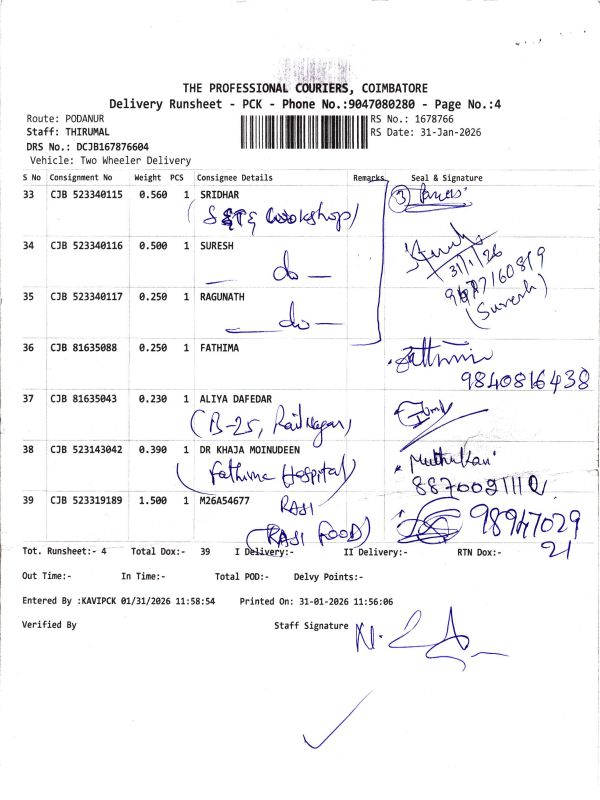 THE PROFESSIONAL COURIERS, COIMBATORE
Delivery Runsheet - PCK - Phone No.:9047080280 - Page No.:4
Route: PODANUR RS No.: 1678766
Staff: THIRUMAL RS Date: 31-Jan-2026
DRS No.: DCJB167876604
Vehicle: Two Wheeler Delivery
S No Consignment No Weight PCS Consignee Details Remarks Seal & Signature
33 CJB 523340115 0.560 1 SRIDHAR 3
(S&T Workshop)
34 CJB 523340116 0.500 1 SURESH
do 31/1/26
35 CJB 523340117 0.250 1 RAGUNATH (Suresh)
do
36 CJB 81635088 0.250 1 FATHIMA Fathima
9840816438
37 CJB 81635043 0.230 1 ALIYA DAFEDAR
(B-25, Rail Nagar)
38 CJB 523143042 0.390 1 DR KHAJA MOINUDEEN
(Fathima Hospital)
39 CJB 523319189 1.500 1 M26A54677
RAJI
(RAJI FOOD)
Tot. Runsheet:- 4 Total Dox:- 39 I Delivery:- II Delivery:- RTN Dox:-
Out Time:- In Time:- Total POD:- Delvy Points:-
Entered By :KAVIPCK 01/31/2026 11:58:54 Printed On: 31-01-2026 11:56:06
Verified By Staff Signature